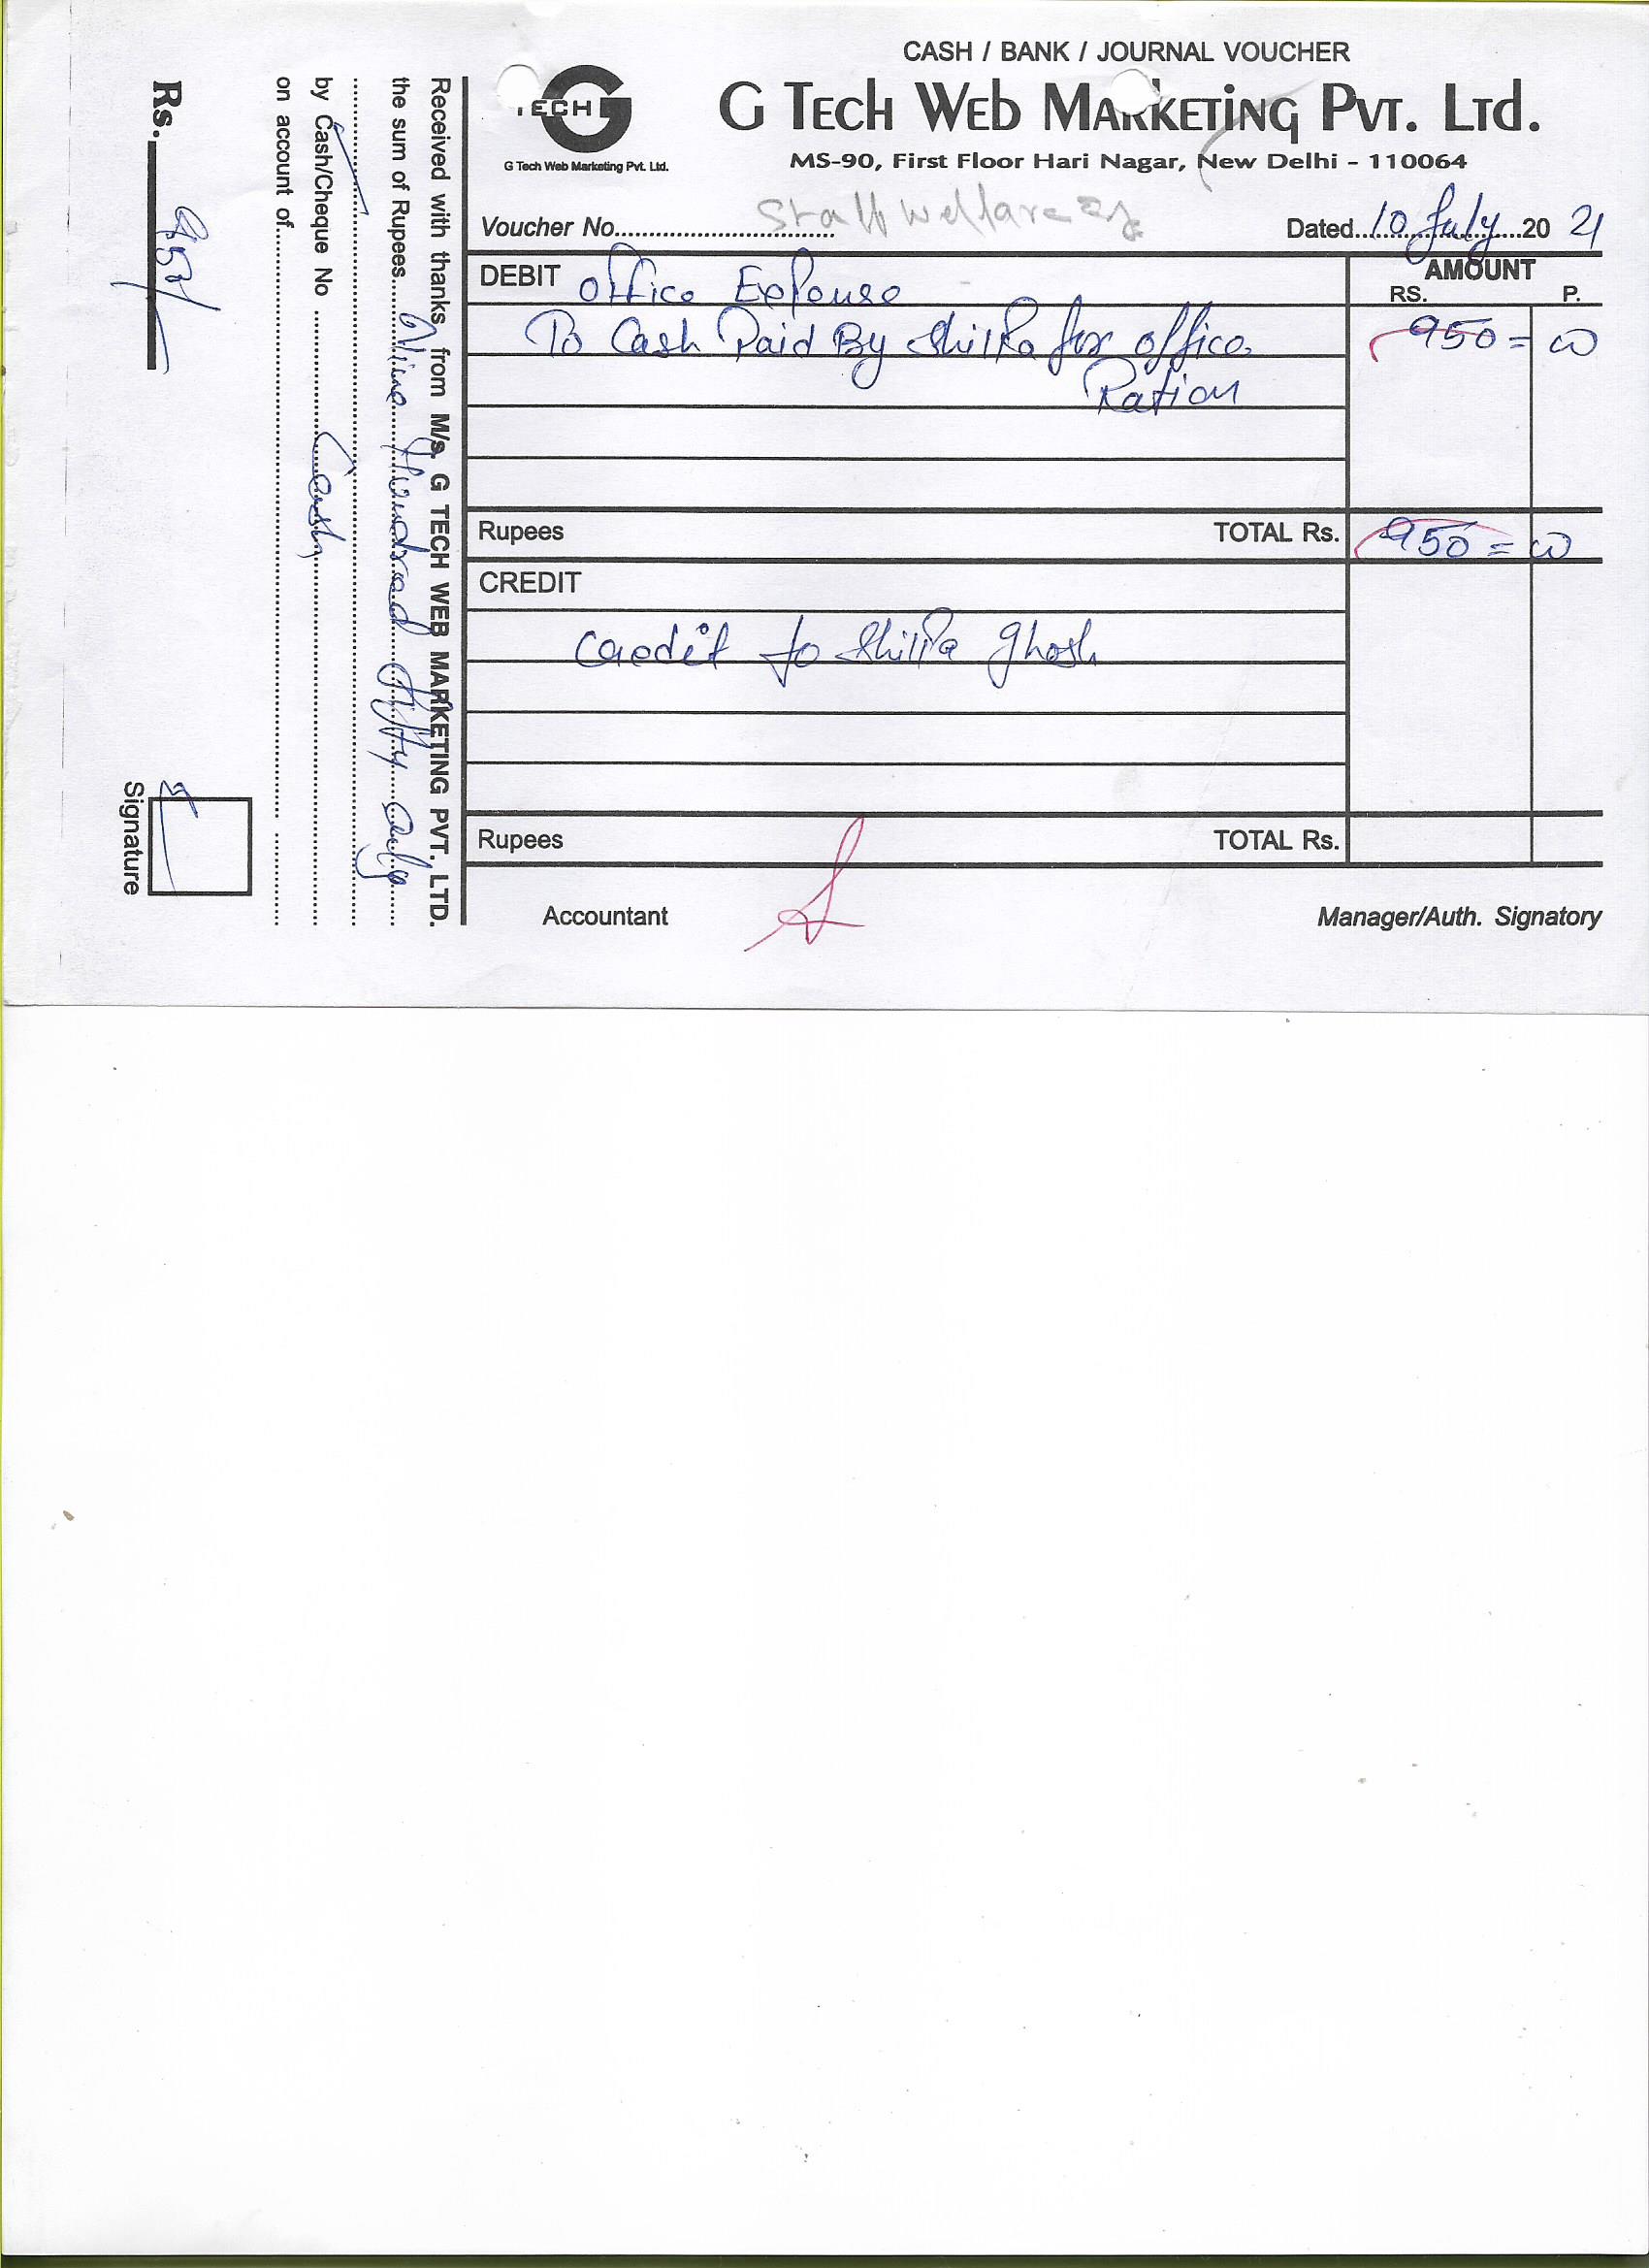 CASH / BANK / JOURNAL VOUCHER
G Tech Web Marketing Pvt. Ltd.
MS-90, First Floor Hari Nagar, New Delhi - 110064
TECH
G Tech Web Marketing Pvt. Ltd.
Voucher No. Staff welfare
Dated 10 July 20 21
DEBIT office Expense
AMOUNT
RS. P.
To Cash Paid By Shilpa for office 950 = 00
Ration
Rupees TOTAL Rs. 950 = 00
CREDIT
Credit to Shilpa Ghosh
Rupees TOTAL Rs.
Accountant Manager/Auth. Signatory
Received with thanks from M/s. G TECH WEB MARKETING PVT. LTD.
the sum of Rupees Nine Hundred fifty only
by Cash/Cheque No Cash
on account of
Rs. 950/-
Signature